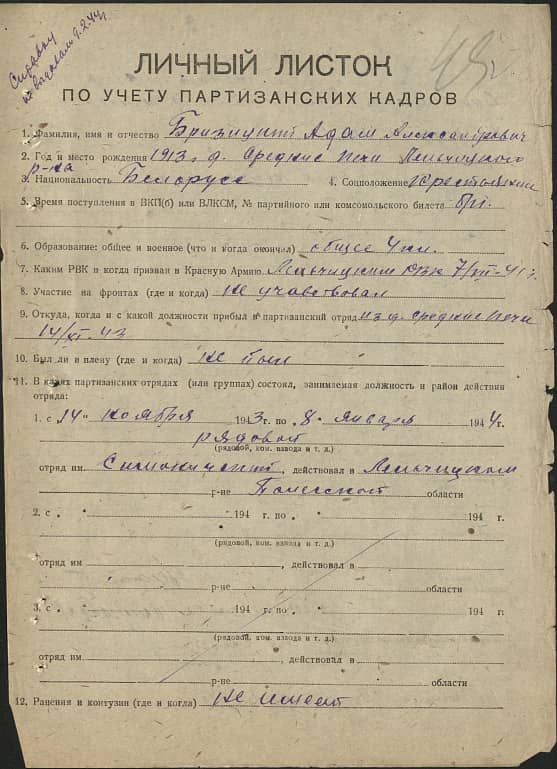 Справку
выслали 9.2.44г
43г
ЛИЧНЫЙ ЛИСТОК
ПО УЧЕТУ ПАРТИЗАНСКИХ КАДРОВ
1. Фамилия, имя и отчество Бризицкий Адам Александрович
2. Год и место рождения 1913, д. Средние Печи Лельчицкого
р-на
3. Национальность Белорусс 4. Соцположение Крестьянин
5. Время поступления в ВКП(б) или ВЛКСМ, № партийного или комсомольского билета б/п.
6. Образование: общее и военное (что и когда окончил) общее 4 кл.
7. Каким РВК и когда призван в Красную Армию Лельчицким РВК 7/VII-41 г.
8. Участие на фронтах (где и когда) Не учавствовал
9. Откуда, когда и с какой должности прибыл в партизанский отряд из д. Средние Печи
14/XI 43
10. Был ли в плену (где и когда) Не был
11. В каких партизанских отрядах (или группах) состоял, занимаемая должность и район действия
отряда:
1. с „14" ноября 1943 г. по „8" января 1944 г.
рядовой
(рядовой, ком. взвода и т. д.)
отряд им. действовал в Лельчицком
р-не Полесской области
2. с „ 194 г. по „ 194 г.
(рядовой, ком. взвода и т. д.)
отряд им. , действовал в
р-не области
3. с „ 194 г. по „ 194 г.
(рядовой, ком. взвода и т. д.)
отряд им. , действовал в
р-не области
12. Ранения и контузии (где и когда) Не имеет